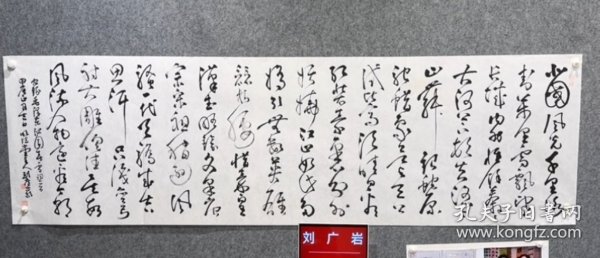 北国风光千里冰
封万里雪飘望
长城内外惟余莽
大河上下顿失滔
山舞银蛇原
驰蜡象欲与天公
试比高须晴日看
红装素裹分外
妖娆江山如此多
娇引无数英雄
竞折腰惜秦皇
汉武略输文采唐
宗宋祖稍逊风
骚一代天骄成吉
思汗只识弯弓
射大雕俱往矣数
风流人物还看今朝
刘广岩
孔夫子旧书网
www.kongfz.com